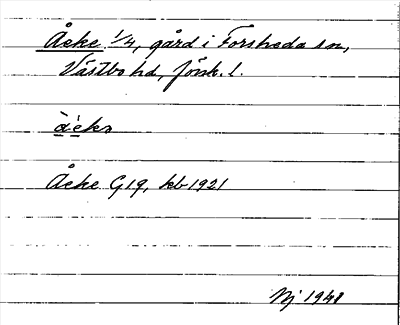 Åcke 1/4, gård i Forsheda sn,
Västbo hd, Jönk. l.
Åcke G19, kb 1921
Nj 1948